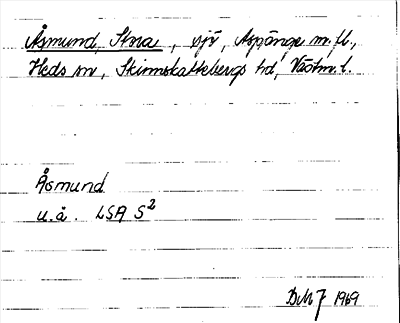 Åsmund, Stora, sjö, Aspänge m.fl.,
Heds sn, Skinnskattebergs hd, Västm. l.
Åsmund
u.å. LSA S2
1969